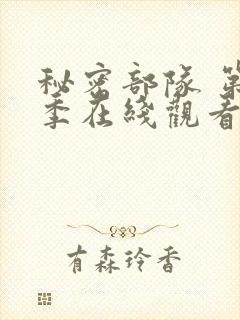 秘密部隊 第
季在綫觀看
有森玲香